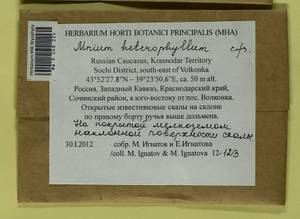 HERBARIUM HORTI BOTANICI PRINCIPALIS (MHA)
Mnium heterophyllum c.sp.
Russian Caucasus, Krasnodar Territory
Sochi District, south-east of Volkonka
43°52'27.8"N – 39°23'50.6"E, ca. 50 m alt.
Россия, Западный Кавказ, Краснодарский край,
Сочинский район, к юго-востоку от пос. Волконка.
Открытые известняковые скалы на склоне
по правому борту ручья выше дольмена.
На покрытой мелкоземом
наклонной поверхности скалы.
30.I.2012 собр. М. Игнатов и Е.Игнатова
/coll. M. Ignatov & M. Ignatova 12-123